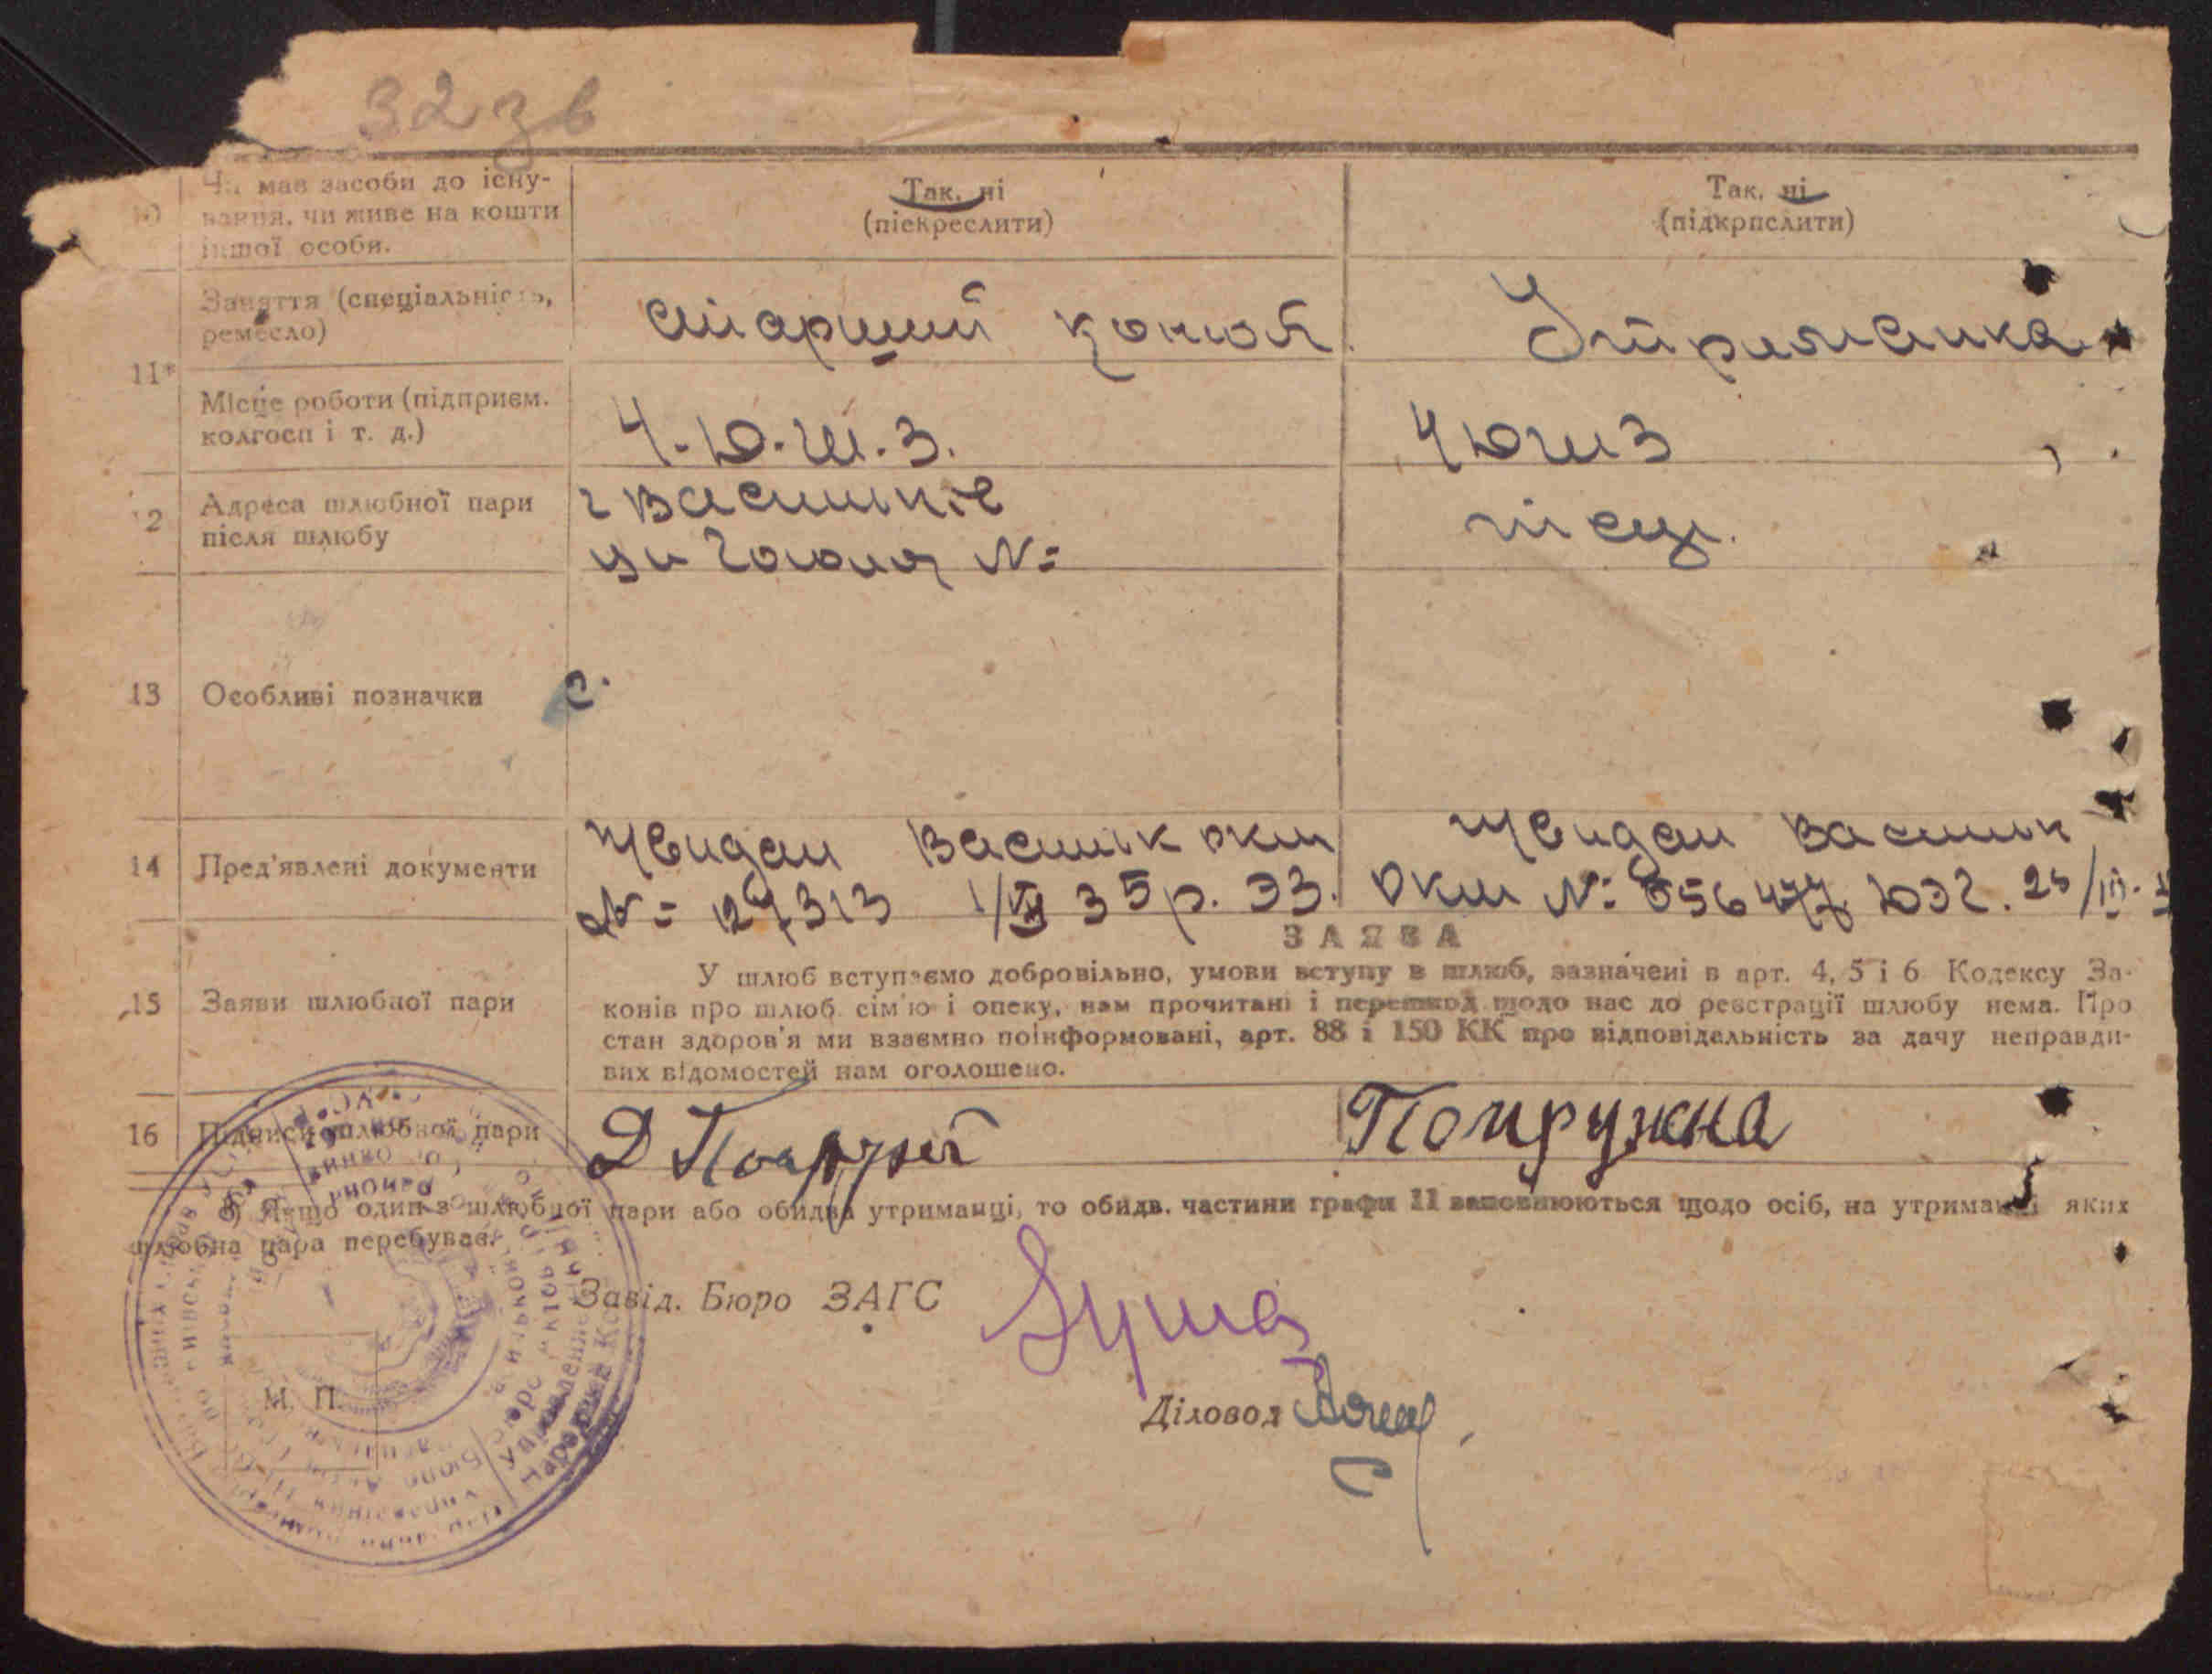 32 зв
10 Чи має засоби до існу-
вання, чи живе на кошти
іншої особи.
Так, ні
(піскреслити)
Так, ні
(підкрпслити)
11* Заняття (спеціальність,
ремесло)
старший конюх
Утриманка
Місце роботи (підприєм.
колгосп і т. д.)
Ч.Ю.Ш.З.
ЧЮШЗ
12 Адреса шлюбної пари
після шлюбу
г Васильків
ул Гоголя №=
місц.
13 Особливі позначки
14 Пред'явлені документи
Васильк окм
№= 127313 1/VI 35р. ЭЗ.
Васильк
окм №: 656477 ЮЭГ. 25/III.
ЗАЯВА
15 Заяви шлюбної пари
У шлюб вступаємо добровільно, умови вступу в шлюб, зазначені в арт. 4, 5 і 6 Кодексу За-
конів про шлюб сім'ю і опеку, нам прочитані і перешкод щодо нас до реєстрації шлюбу нема. Про
стан здоров'я ми взаємно поінформовані, арт. 88 і 150 КК про відповідальність за дачу неправди-
вих відомостей нам оголошено.
16 Підписи шлюбної пари
Попружна
*) Якщо один з шлюбної пари або обидва утриманці, то обидв. частини графи 11 заповнюються щодо осіб, на утриманні яких
шлюбна пара перебуває.
Завід. Бюро ЗАГС
Діловод
М. П.